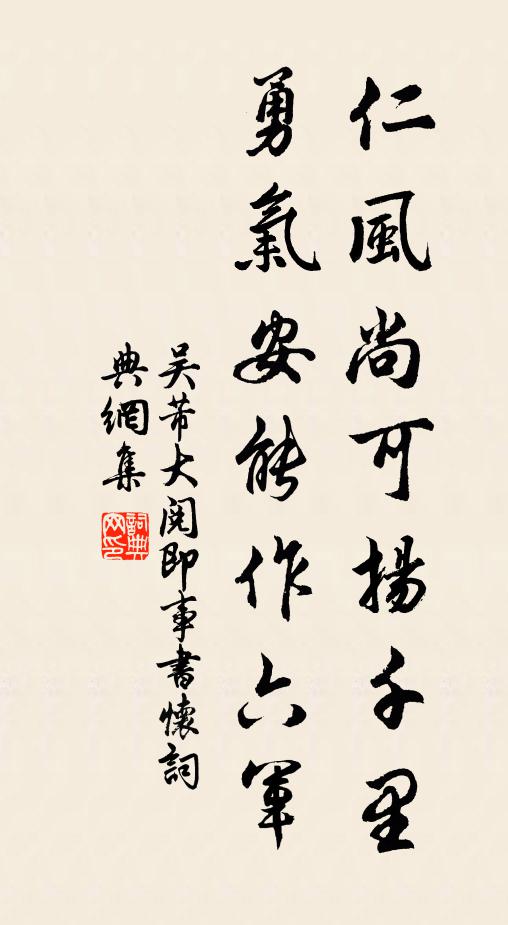 仁風尚可揚千里
勇氣安能作六軍
吳芾大閱即事書懷詞
典網集
詞典
網印